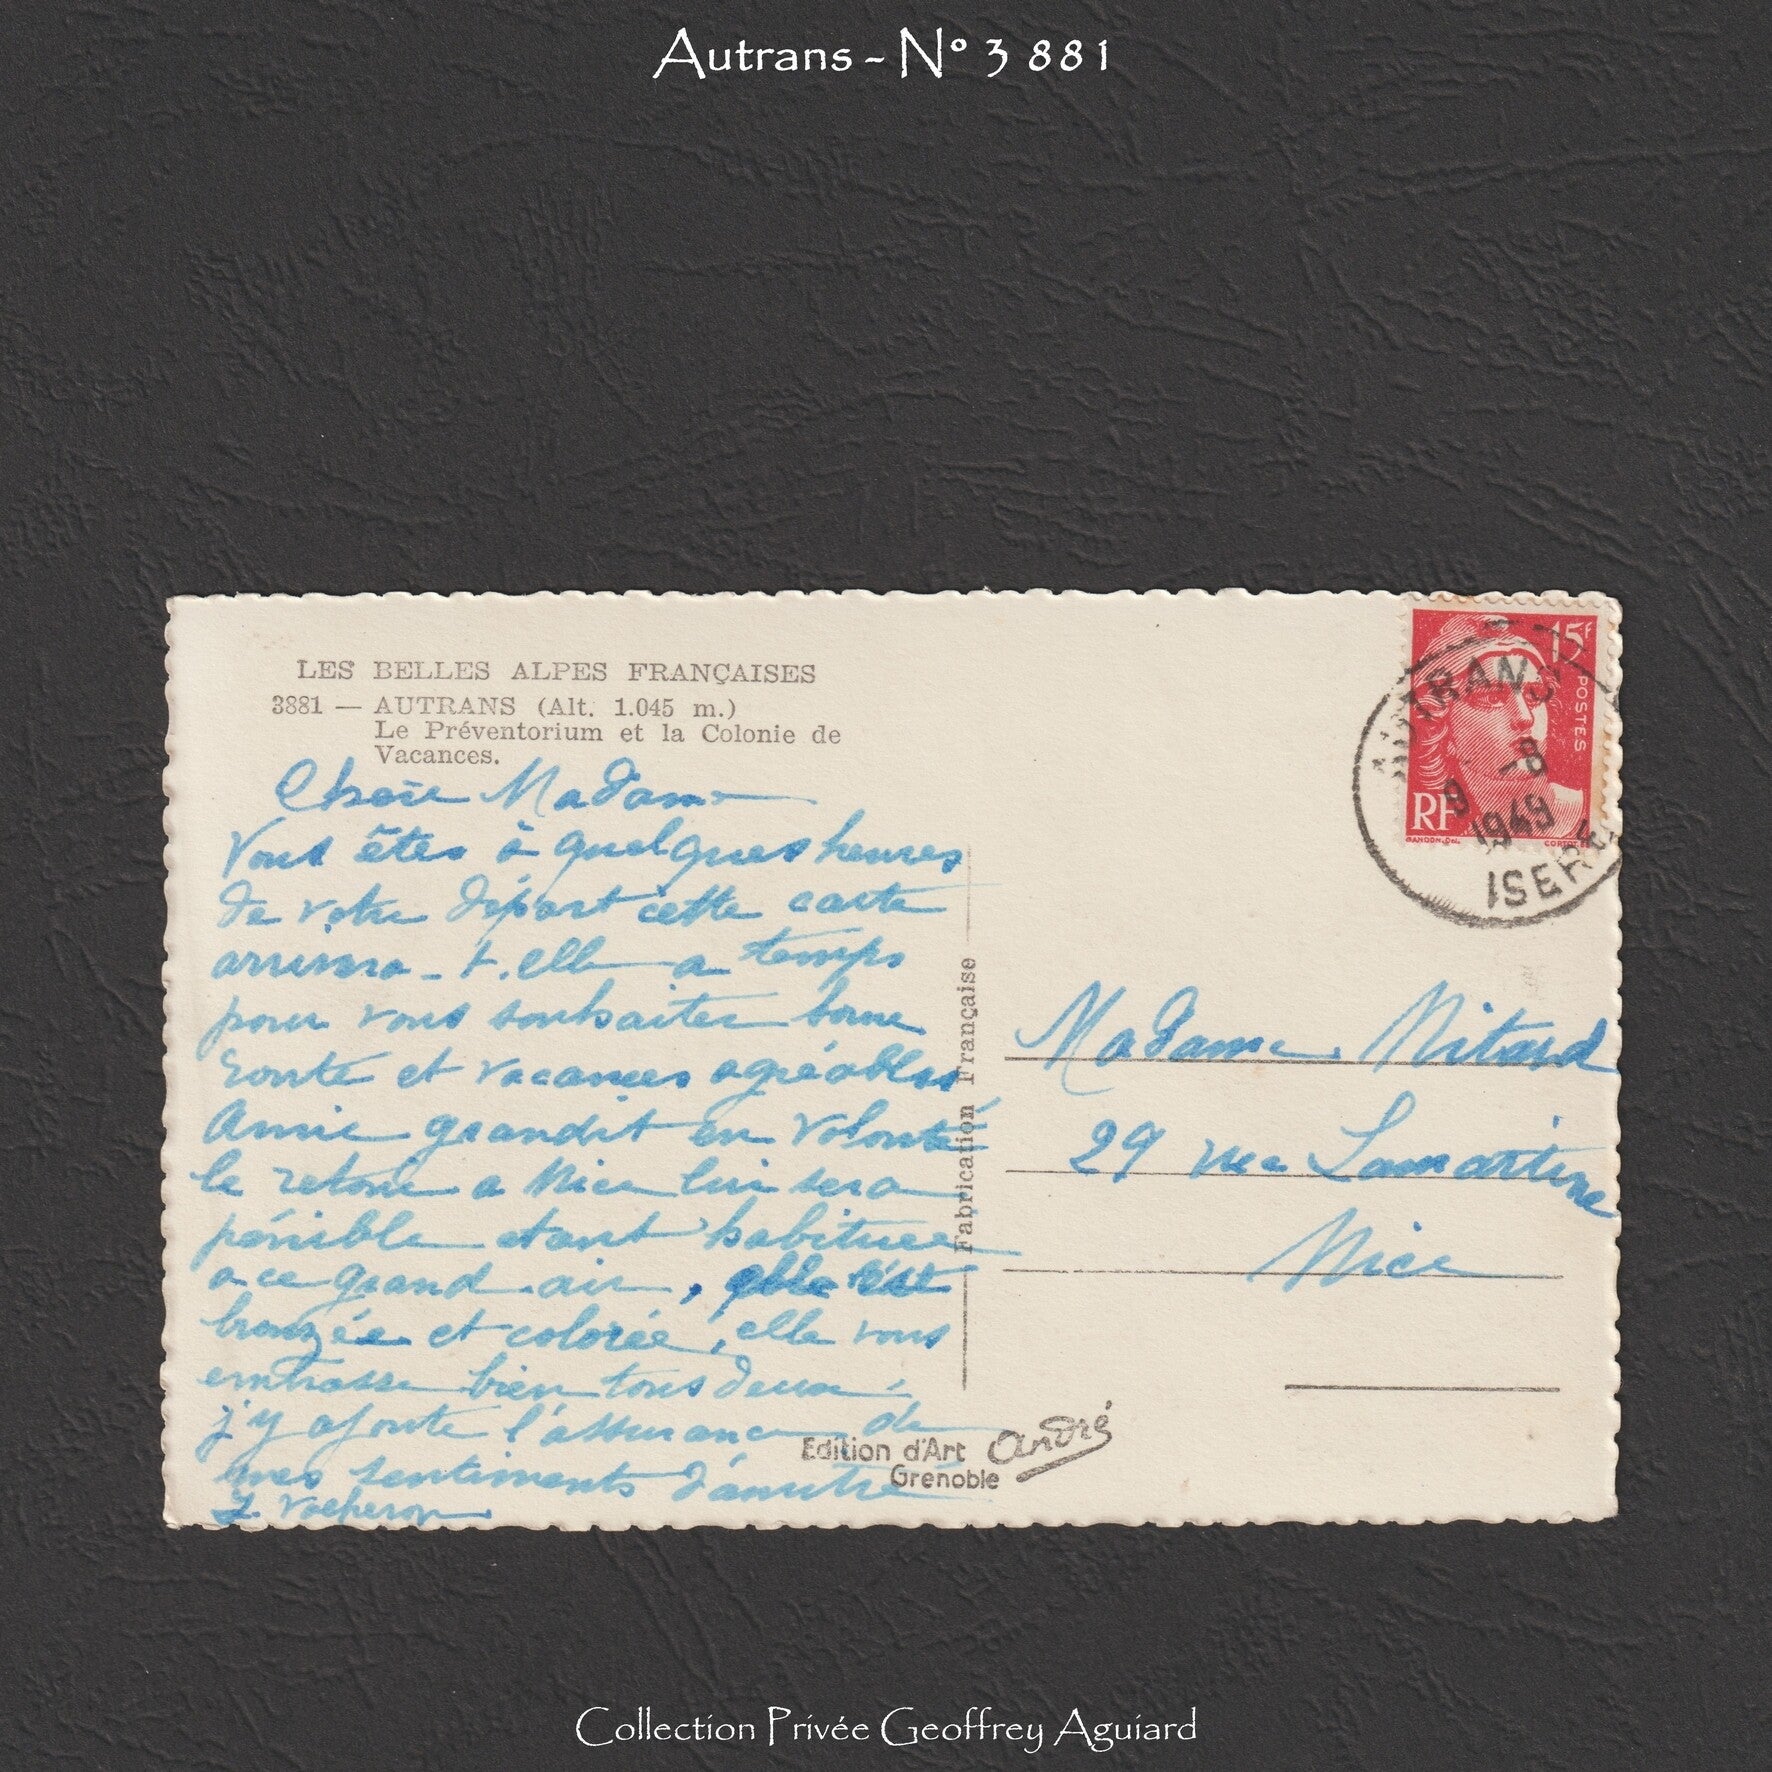 Autrans - N° 3 881
LES BELLES ALPES FRANÇAISES
3881 — AUTRANS (Alt. 1.045 m.)
Le Préventorium et la Colonie de
Vacances.
Chère Madame
Vous êtes à quelques heures
de votre départ cette carte
arrivera-t-elle a temps
pour vous souhaiter bonne
route et vacances agréables
Annie grandit en volonté
le retour a Nice lui sera
pénible etant habituee
a ce grand air, elle est
bronzée et colorée, elle vous
embrasse bien tous deux
j'y ajoute l'assurance de
mes sentiments d'amitié
Fabrication Française
Edition d'Art André
Grenoble
15f
POSTES
RF
GANDON. Del.
AUTRANS
9 -8
1949
ISERE
Madame Nitard
29 rue Lamartine
Nice
Collection Privée Geoffrey Aguiard